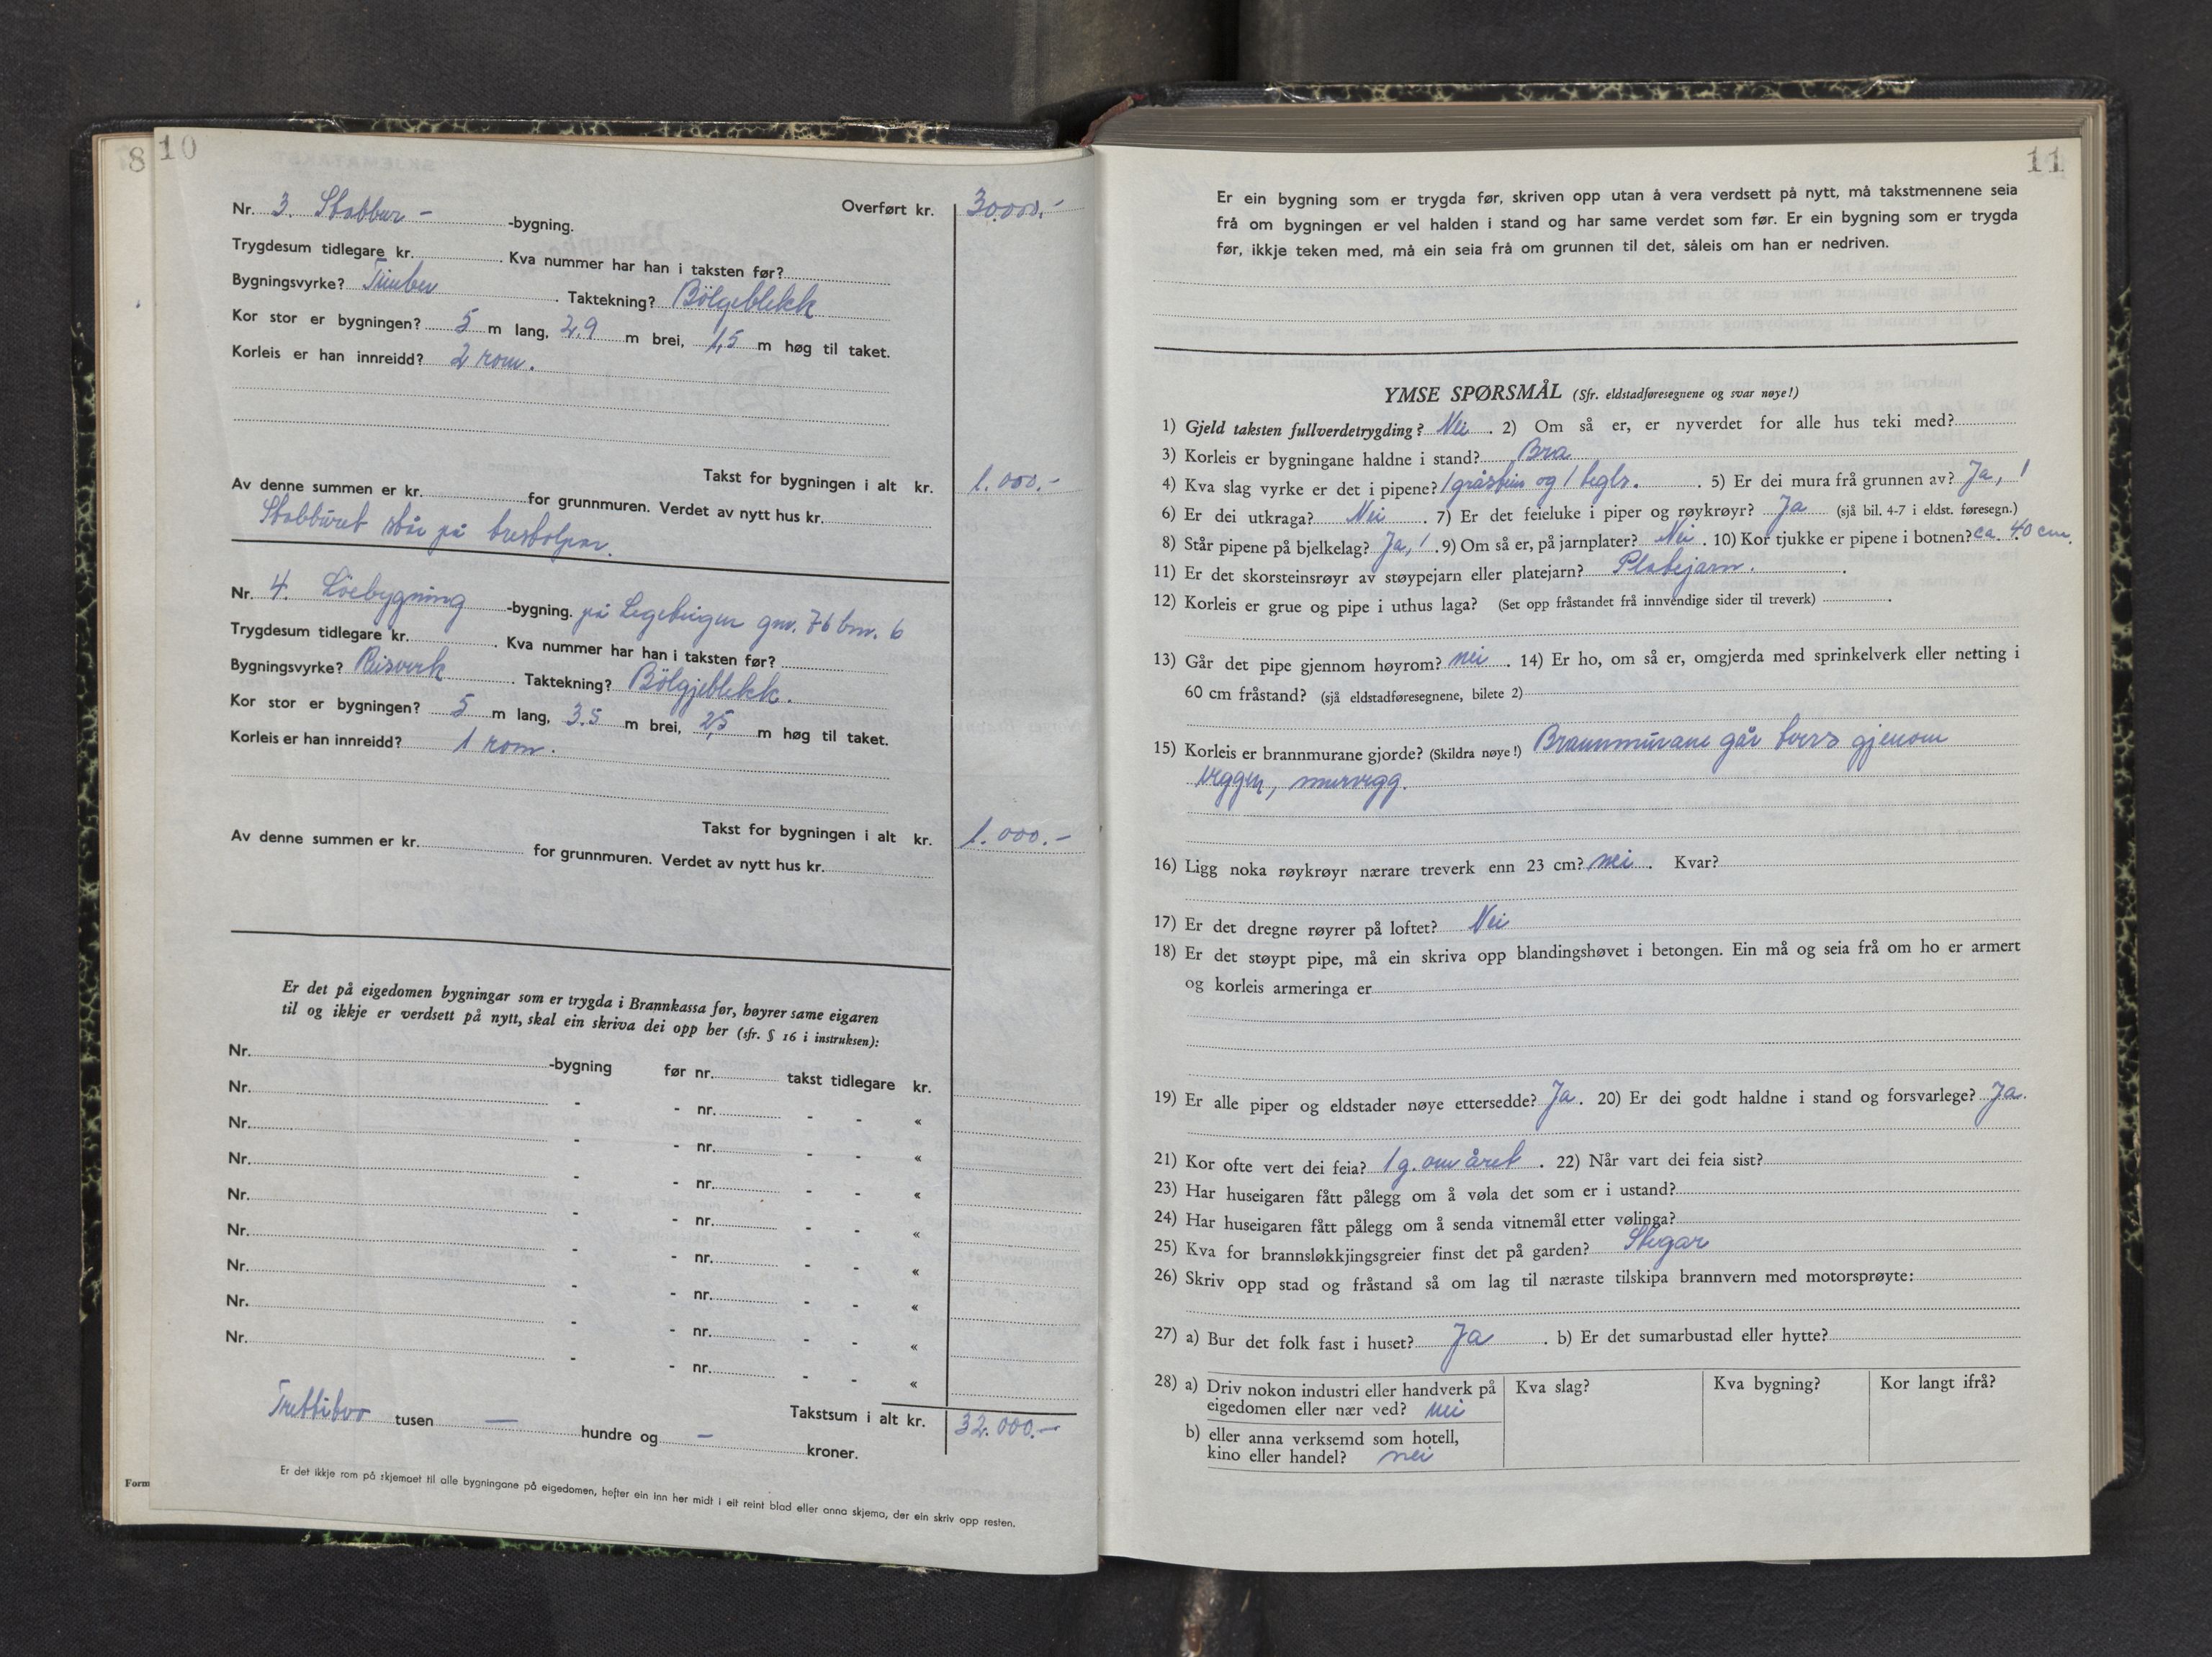 8
10
Nr. 3. Stabbur – -bygning. Overført kr. 30.000.-
Trygdesum tidlegare kr. Kva nummer har han i taksten før?
Bygningsvyrke? Timber. Taktekning? Bölgeblekk
Kor stor er bygningen? 5 m lang, 2.9 m brei, 1,5 m høg til taket.
Korleis er han innreidd? 2 rom.
Takst for bygningen i alt kr. 1.000.-
Av denne summen er kr. for grunnmuren. Verdet av nytt hus kr.
Stabburet står på trestolpar.
Nr. 4. Löebygning -bygning. på gnr. 76 bnr. 6
Trygdesum tidlegare kr. Kva nummer har han i taksten før?
Bygningsvyrke? Reisverk. Taktekning? Bölgjeblekk.
Kor stor er bygningen? 5 m lang, 3.5 m brei, 2,5 m høg til taket.
Korleis er han innreidd? 1 rom.
Takst for bygningen i alt kr. 1.000.-
Av denne summen er kr. for grunnmuren. Verdet av nytt hus kr.
Er det på eigedomen bygningar som er trygda i Brannkassa før, høyrer same eigaren
til og ikkje er verdsett på nytt, skal ein skriva dei opp her (sfr. § 16 i instruksen):
Nr. -bygning før nr. takst tidlegare kr.
Nr. - - nr. - - «
Nr. - - nr. - - «
Nr. - - nr. - - «
Nr. - - nr. - - «
Nr. - - nr. - - «
Nr. - - nr. - - «
Nr. - - nr. - - «
Nr. - - nr. - - «
Trettito tusen – hundre og – kroner. Takstsum i alt kr. 32.000.-
Er det ikkje rom på skjemaet til alle bygningane på eigedomen, hefter ein inn her midt i eit reint blad eller anna skjema, der ein skriv opp resten.
Form
11
Er ein bygning som er trygda før, skriven opp utan å vera verdsett på nytt, må takstmennene seia
frå om bygningen er vel halden i stand og har same verdet som før. Er ein bygning som er trygda
før, ikkje teken med, må ein seia frå om grunnen til det, såleis om han er nedriven.
YMSE SPØRSMÅL (Sfr. eldstadføresegnene og svar nøye!)
1) Gjeld taksten fullverdetrygding? Nei. 2) Om så er, er nyverdet for alle hus teki med?
3) Korleis er bygningane haldne i stand? Bra
4) Kva slag vyrke er det i pipene? 1 gråstein og 1 tegls. 5) Er dei mura frå grunnen av? Ja, 1
6) Er dei utkraga? Nei. 7) Er det feieluke i piper og røykrøyr? Ja (sjå bil. 4-7 i eldst. føresegn.)
8) Står pipene på bjelkelag? Ja, 1. 9) Om så er, på jarnplater? Nei. 10) Kor tjukke er pipene i botnen? ca. 40 cm.
11) Er det skorsteinsrøyr av støypejarn eller platejarn? Platejarn.
12) Korleis er grue og pipe i uthus laga? (Set opp fråstandet frå innvendige sider til treverk)
13) Går det pipe gjennom høyrom? nei. 14) Er ho, om så er, omgjerda med sprinkelverk eller netting i
60 cm fråstand? (sjå eldstadføresegnene, bilete 2)
15) Korleis er brannmurane gjorde? (Skildra nøye!) Brannmurane går tvers gjenom
veggen, murvegg.
16) Ligg noka røykrøyr nærare treverk enn 23 cm? nei. Kvar?
17) Er det dregne røyrer på loftet? Nei
18) Er det støypt pipe, må ein skriva opp blandingshøvet i betongen. Ein må og seia frå om ho er armert
og korleis armeringa er
19) Er alle piper og eldstader nøye ettersedde? Ja. 20) Er dei godt haldne i stand og forsvarlege? Ja.
21) Kor ofte vert dei feia? 1 g. om året. 22) Når vart dei feia sist?
23) Har huseigaren fått pålegg om å vøla det som er i ustand?
24) Har huseigaren fått pålegg om å senda vitnemål etter vølinga?
25) Kva for brannsløkkjingsgreier finst det på garden? Stegar
26) Skriv opp stad og fråstand så om lag til næraste tilskipa brannvern med motorsprøyte:
27) a) Bur det folk fast i huset? Ja. b) Er det sumarbustad eller hytte?
28) a) Driv nokon industri eller handverk på eigedomen eller nær ved? nei
Kva slag? Kva bygning? Kor langt ifrå?
b) eller anna verksemd som hotell,
kino eller handel? nei